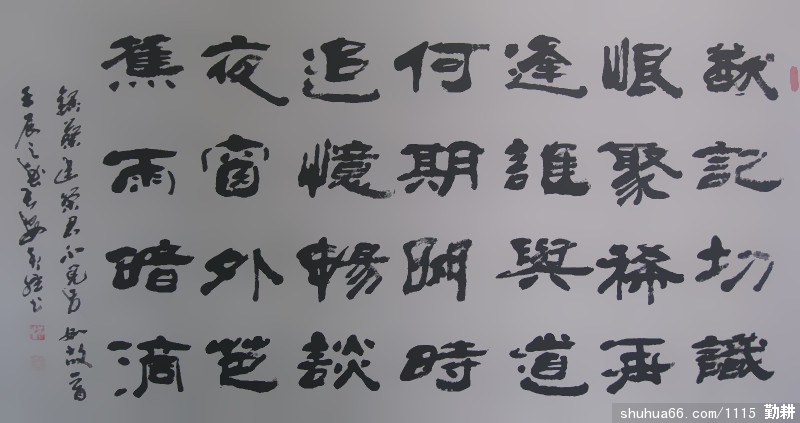 猷記切識
岷聚稀再
逢誰與道
何期明時
追憶暢談
夜窗外芭
蕉雨暗滴
錄 君 如故一首
壬辰之 書
shuhua66.com/1115 勤耕